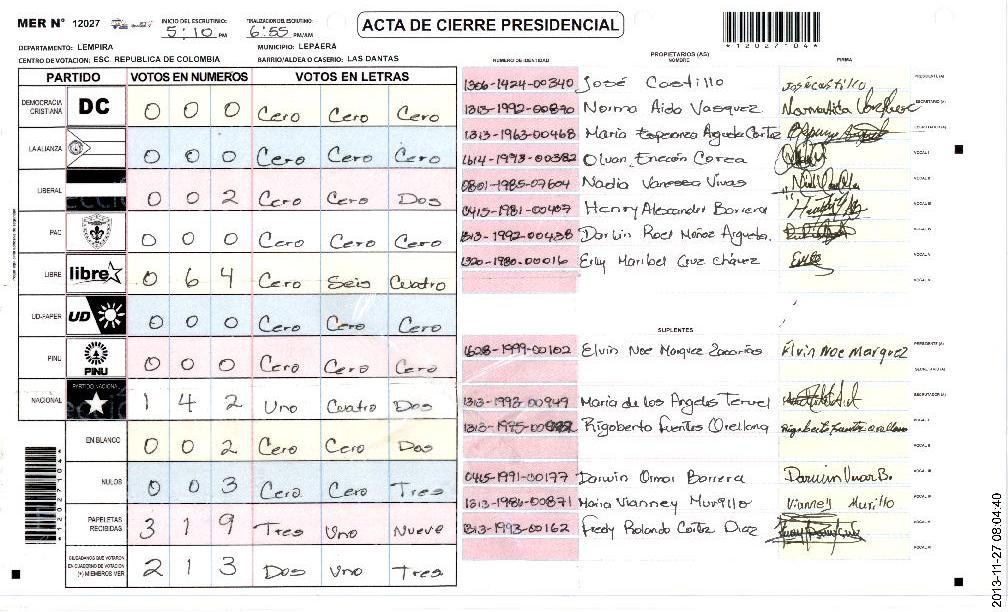 MER N° 12027
INICIO DEL ESCRUTINIO: 5:10 PM
FINALIZACION DEL ESCRUTINIO: 6:55 PM/AM
ACTA DE CIERRE PRESIDENCIAL
*12027104*
DEPARTAMENTO: LEMPIRA
MUNICIPIO: LEPAERA
CENTRO DE VOTACION: ESC. REPUBLICA DE COLOMBIA
BARRIO/ALDEA O CASERIO: LAS DANTAS
PARTIDO VOTOS EN NUMEROS VOTOS EN LETRAS
DEMOCRACIA CRISTIANA DC 0 0 0 Cero Cero Cero
LA ALIANZA 0 0 0 Cero Cero Cero
LIBERAL 0 0 2 Cero Cero Dos
PAC 0 0 0 Cero Cero Cero
LIBRE libre 0 6 4 Cero Seis Cuatro
UD-FAPER UD 0 0 0 Cero Cero Cero
PINU PINU 0 0 0 Cero Cero Cero
NACIONAL PARTIDO NACIONAL 1 4 2 Uno Cuatro Dos
EN BLANCO 0 0 2 Cero Cero Dos
NULOS 0 0 3 Cero Cero Tres
PAPELETAS RECIBIDAS 3 1 9 Tres Uno Nueve
CIUDADANOS QUE VOTARON EN CUADERNO DE VOTACION (+) MIEMBROS MER 2 1 3 Dos Uno Tres
*12027104*
PROPIETARIOS (AS)
NUMERO DE IDENTIDAD NOMBRE FIRMA
1306-1924-00340 José Castillo José castillo PRESIDENTE (A)
1313-1992-00890 Norma Aida Vasquez SECRETARIO (A)
1313-1963-00468 Maria Esperanza Argueta Cortez ESCRUTADOR (A)
1614-1993-00382 Olvan Correa VOCAL I
0801-1985-07604 Nadia Vanessa Vivas VOCAL II
0415-1981-00407 Henry Alexander Borrera VOCAL III
1313-1992-00438 Darwin Roel Muñoz Argueta. VOCAL IV
1320-1980-00016 Erly Maribel Cruz chávez VOCAL V
VOCAL VI
SUPLENTES
1628-1999-00102 Elvin Noe Marquez Zacarias Elvin Noe Marquez PRESIDENTE (A)
SECRETARIO (A)
1313-1993-00949 Maria de los Angeles Teruel ESCRUTADOR (A)
Rigoberto Fuentes Orellana Rigoberto Fuentes orellana VOCAL I
VOCAL II
0415-1991-00177 Darwin Omar Borrera Darwin Omar B. VOCAL III
1313-1986-00871 Maria Vianney Murillo Vianney Murillo VOCAL IV
1313-1993-00162 Fredy Rolando Cortez Diaz VOCAL V
VOCAL VI
2013-11-27 08:04:40